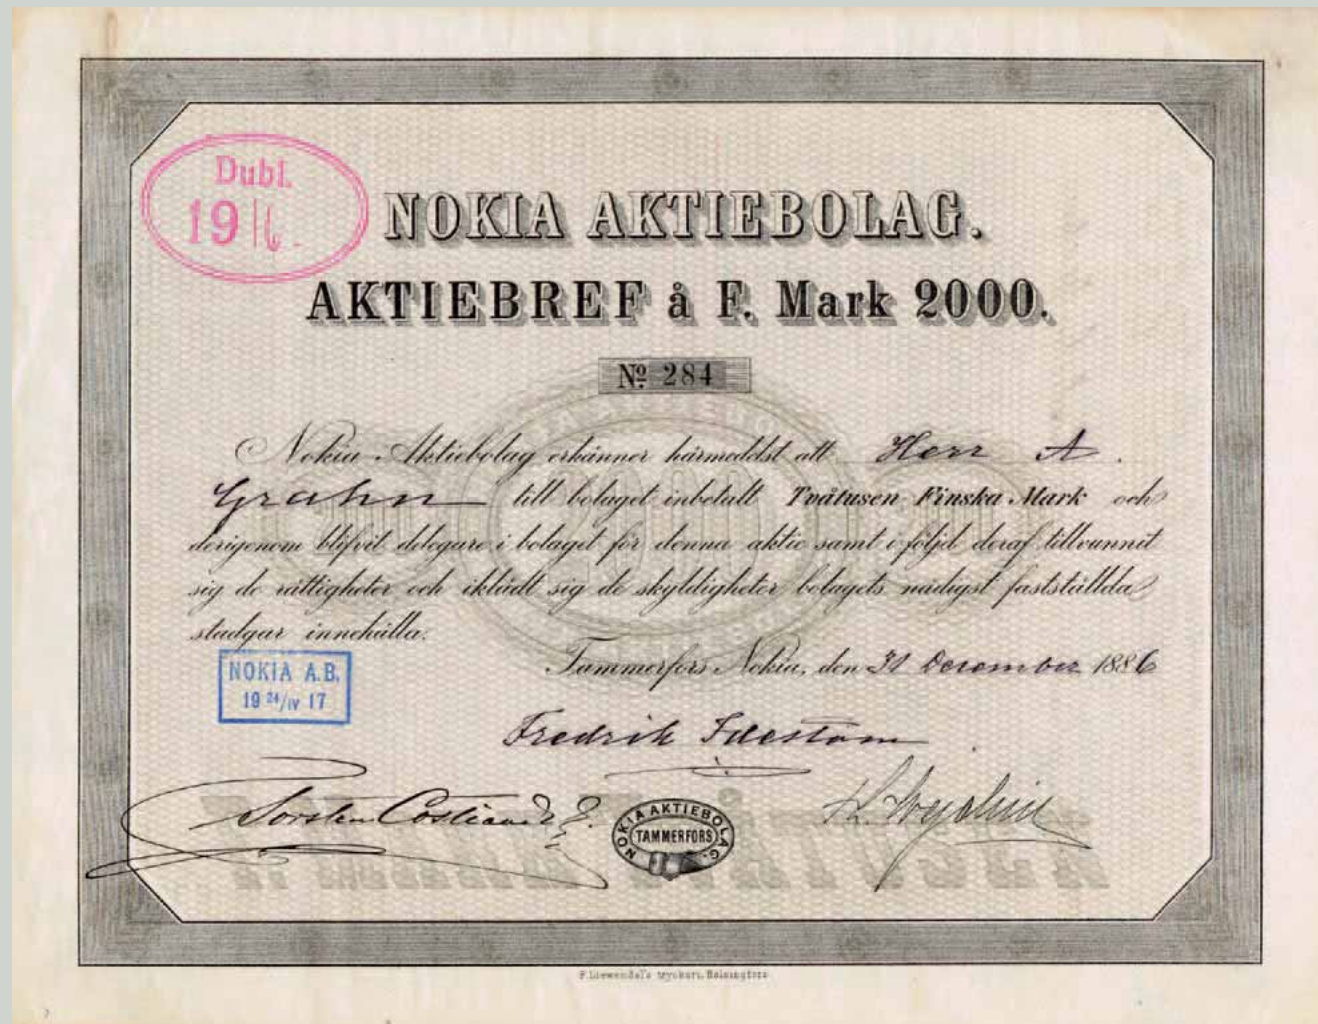 Dubl.
1916.
NOKIA AKTIEBOLAG.
AKTIEBREF å F. Mark 2000.
Nº 284
Nokia Aktiebolag erkänner härmedelst att Herr A.
Grahn till bolaget inbetalt Tvåtusen Finska Mark och
derigenom blifvit delegare i bolaget för denna aktie samt i följd deraf tillvunnit
sig de rättigheter och iklädt sig de skyldigheter bolagets nådigst fastställda
stadgar innehålla.
Tammerfors Nokia, den 31 December 1886
NOKIA A.B.
19 24/IV 17
Fredrik Idestam
Torsten Costiander
NOKIA AKTIEBOLAG.
TAMMERFORS
F. Liewendal's tryckeri, Helsingfors